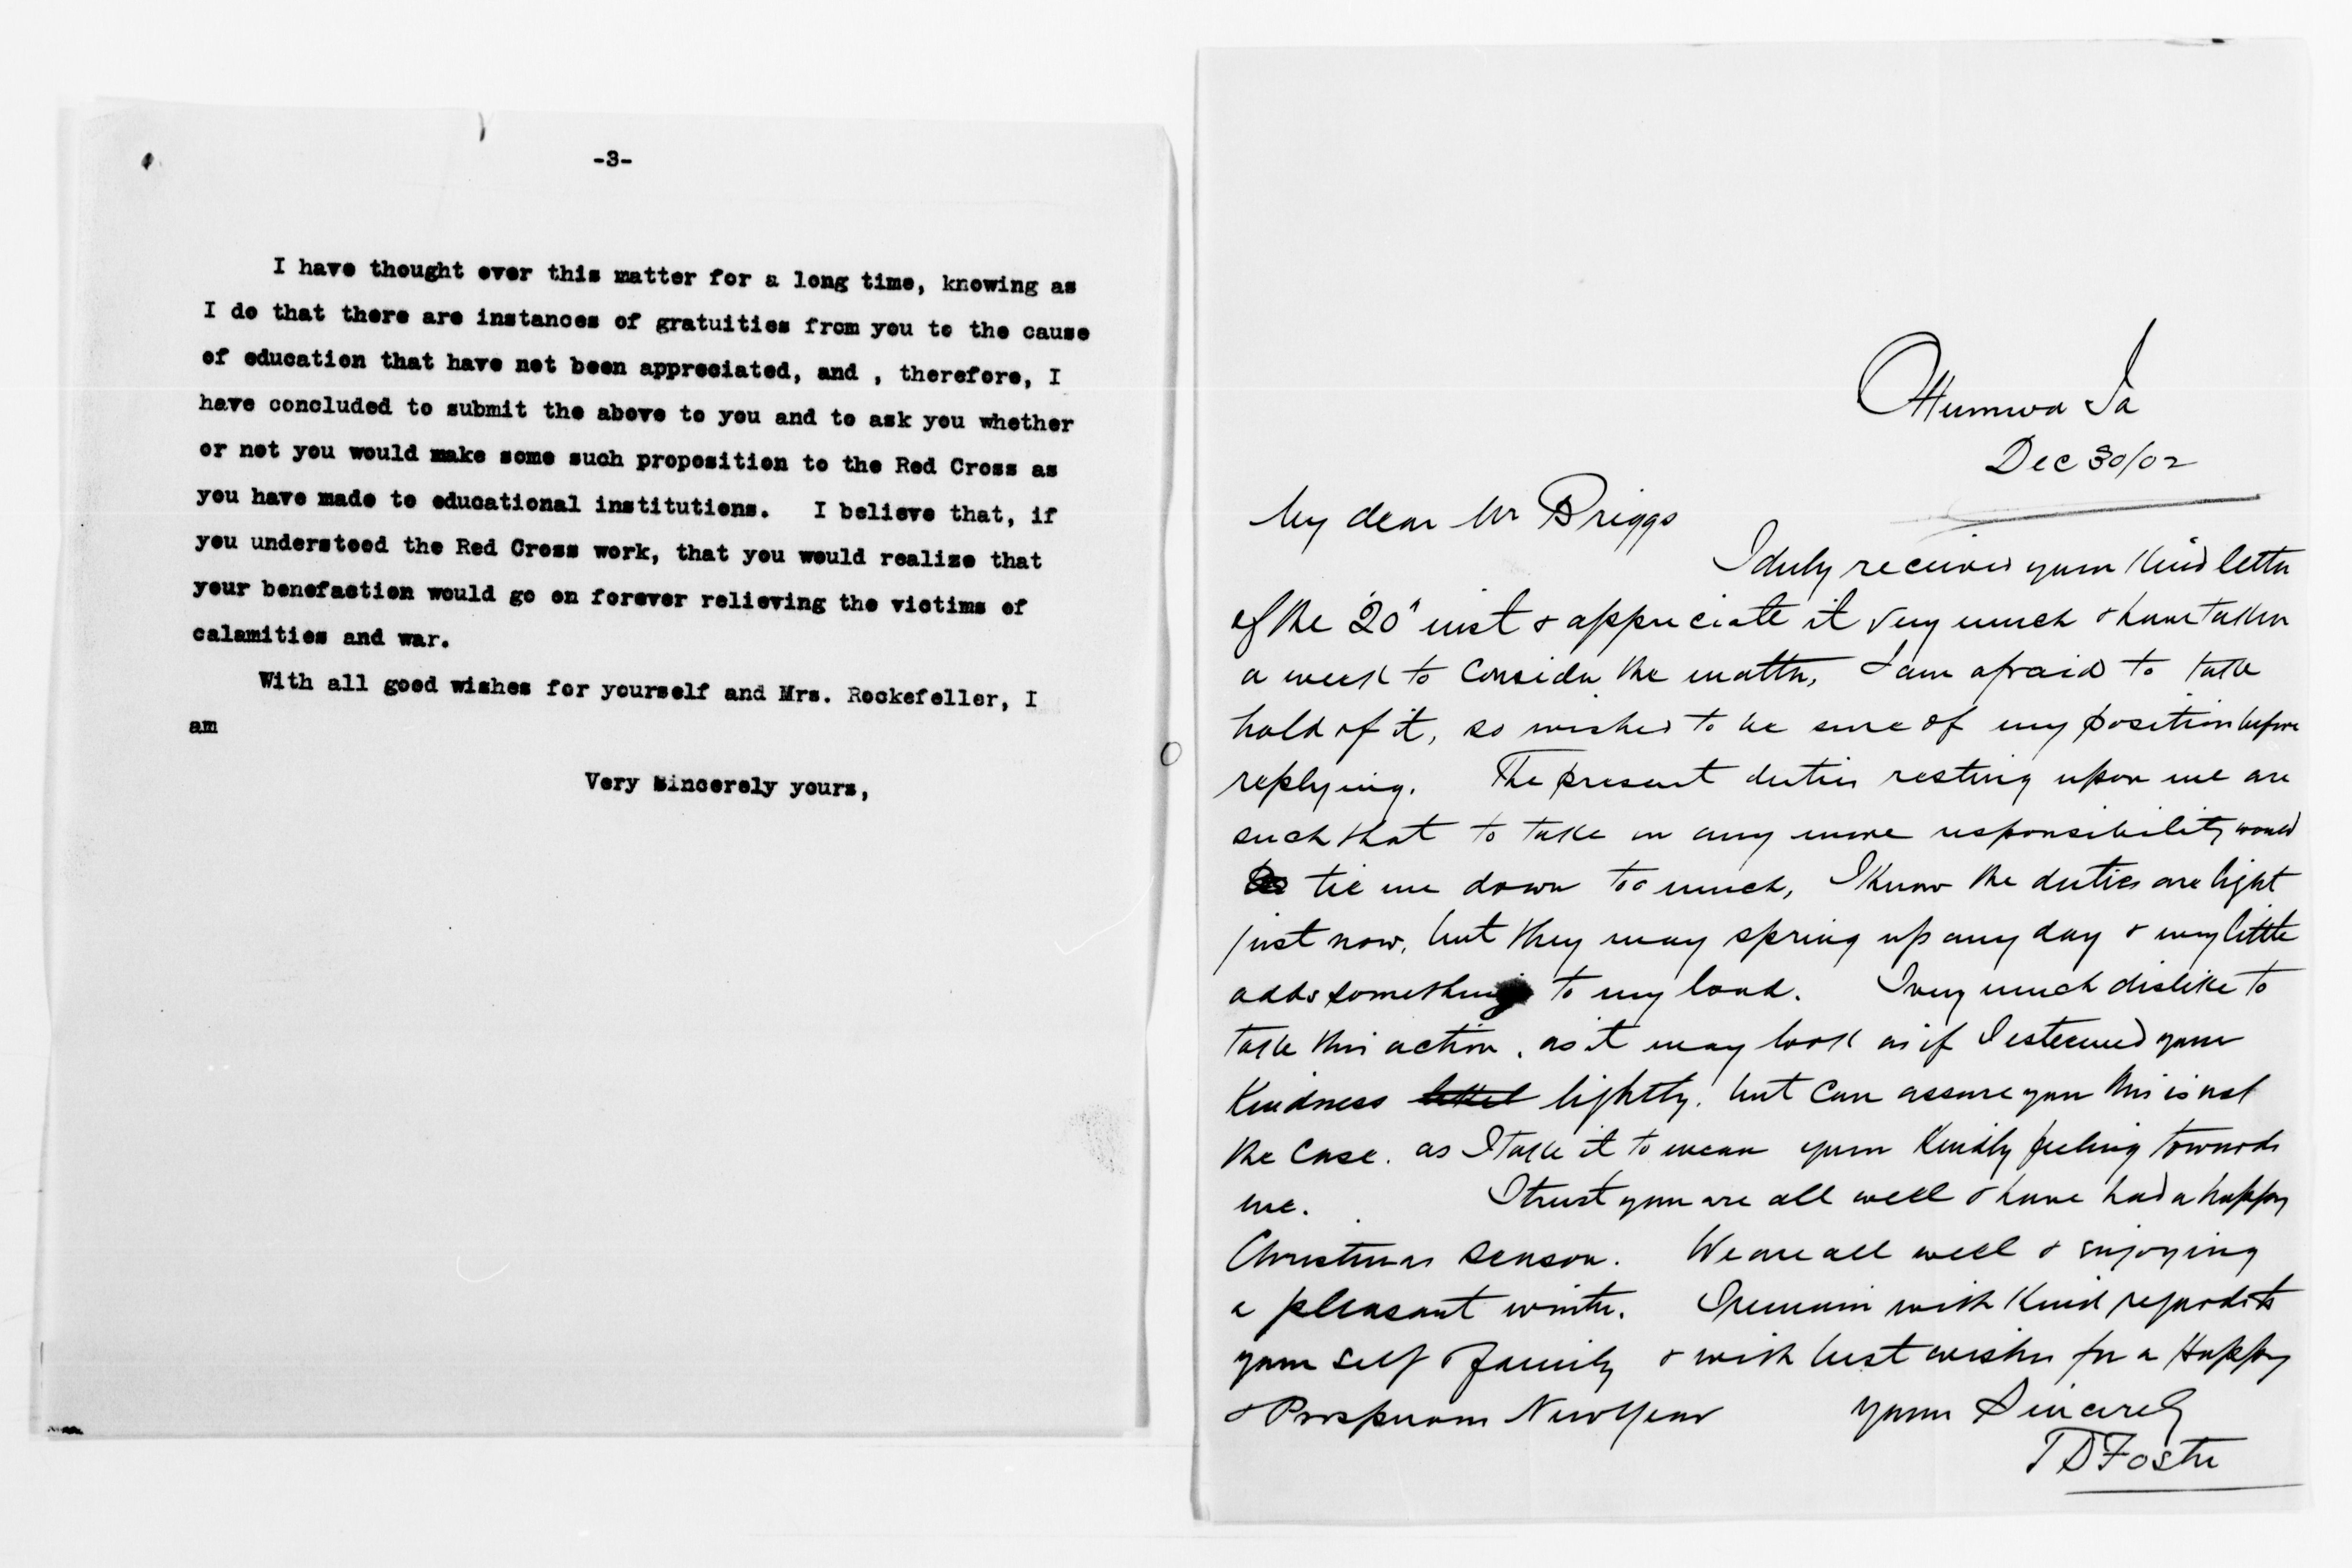 -3-
I have thought over this matter for a long time, knowing as
I do that there are instances of gratuities from you to the cause
of education that have not been appreciated, and , therefore, I
have concluded to submit the above to you and to ask you whether
or not you would make some such proposition to the Red Cross as
you have made to educational institutions. I believe that, if
you understood the Red Cross work, that you would realize that
your benefaction would go on forever relieving the victims of
calamities and war.
With all good wishes for yourself and Mrs. Rockefeller, I
am
Very Sincerely yours,
Ottumwa Ia
Dec 30/02
My dear Mr Briggs
I duly received your kind letter
of the 20" inst & appreciate it very much & have taken
a week to consider the matter, I am afraid to take
hold of it, so wished to be sure of my position before
replying. The present duties resting upon me are
such that to take on any more responsibility would
tie me down too much, I know the duties are light
just now, but they may spring up any day & every little
adds something to my load. I very much dislike to
take this action, as it may look as if I esteemed your
kindness lightly, but can assure you this is not
the case. as I take it to mean your kindly feeling towards
me. I trust you are all well & have had a happy
Christmas season. We are all well & enjoying
a pleasant winter. I remain with kind regards to
your self & family & with best wishes for a Happy
& Prosperous New Year Yours Sincerely
T D Foster